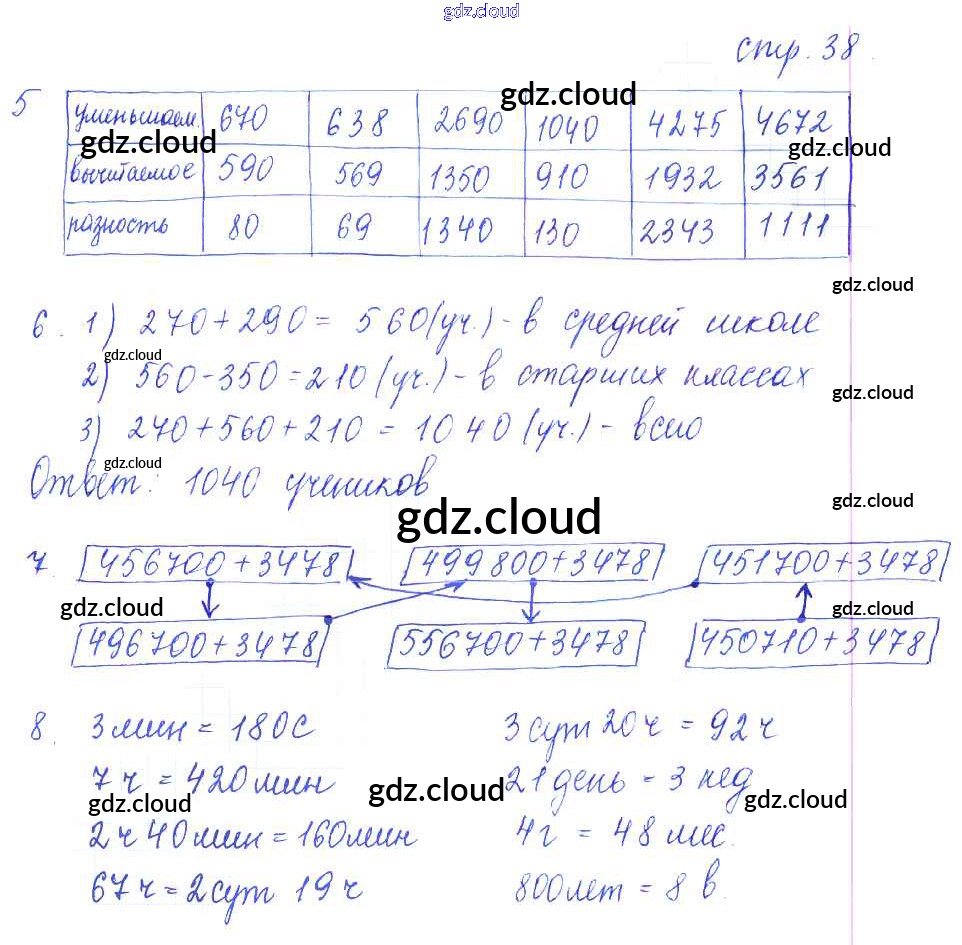 gdz.cloud
стр. 38.
5
уменьшаем. 670 638 2690 1040 4275 4672
вычитаемое 590 569 1350 910 1932 3561
разность 80 69 1340 130 2343 1111
gdz.cloud
gdz.cloud
gdz.cloud
gdz.cloud
6. 1) 270 + 290 = 560 (уч.) - в средней школе
gdz.cloud
2) 560 - 350 = 210 (уч.) - в старших классах
gdz.cloud
3) 270 + 560 + 210 = 1040 (уч.) - всего
gdz.cloud
Ответ: 1040 учеников
gdz.cloud
gdz.cloud
7. 456700 + 3478 499800 + 3478 451700 + 3478
gdz.cloud
gdz.cloud
496700 + 3478 556700 + 3478 450710 + 3478
8. 3 мин = 180 с 3 сут 20 ч = 92 ч
7 ч = 420 мин 21 день = 3 нед
gdz.cloud
gdz.cloud
gdz.cloud
2 ч 40 мин = 160 мин 4 г = 48 мес.
67 ч = 2 сут 19 ч 800 лет = 8 в.